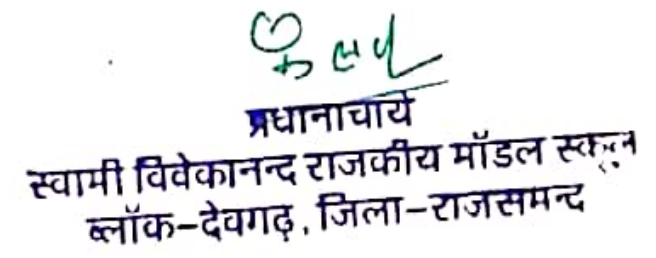 प्रधानाचार्य
स्वामी विवेकानन्द राजकीय मॉडल स्कूल
ब्लॉक-देवगढ़, जिला-राजसमन्द